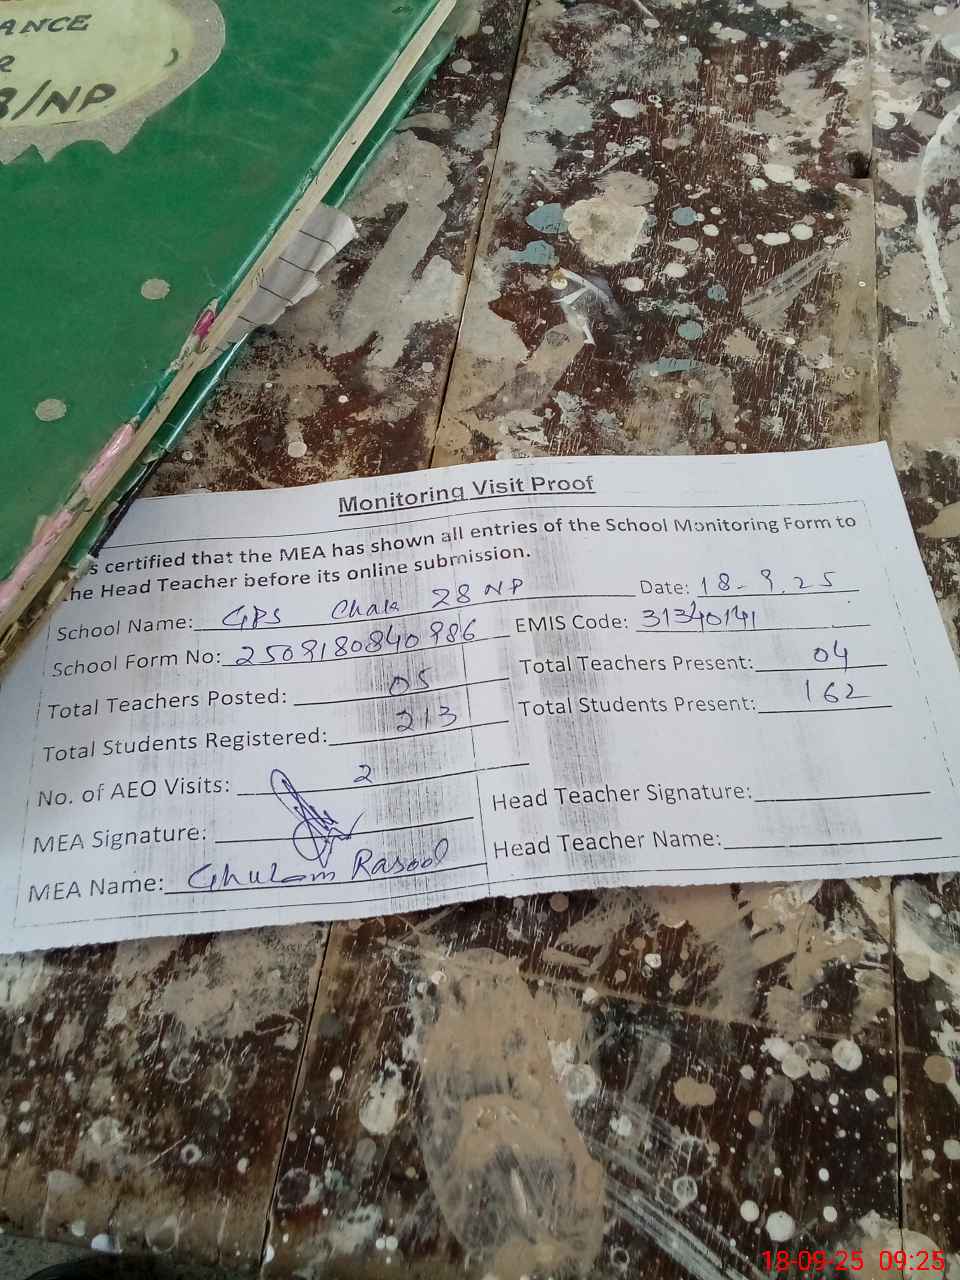 ANCE
R
8/NP
Monitoring Visit Proof
s certified that the MEA has shown all entries of the School Monitoring Form to
he Head Teacher before its online submission.
School Name: GPS Chak 28 NP Date: 18-9.25
School Form No: 2509180840986 EMIS Code: 31340141
Total Teachers Posted: 05 Total Teachers Present: 04
Total Students Registered: 213 Total Students Present: 162
No. of AEO Visits: 2
MEA Signature: Head Teacher Signature:
MEA Name: Ghulam Rasool Head Teacher Name:
18-09-25 09:25